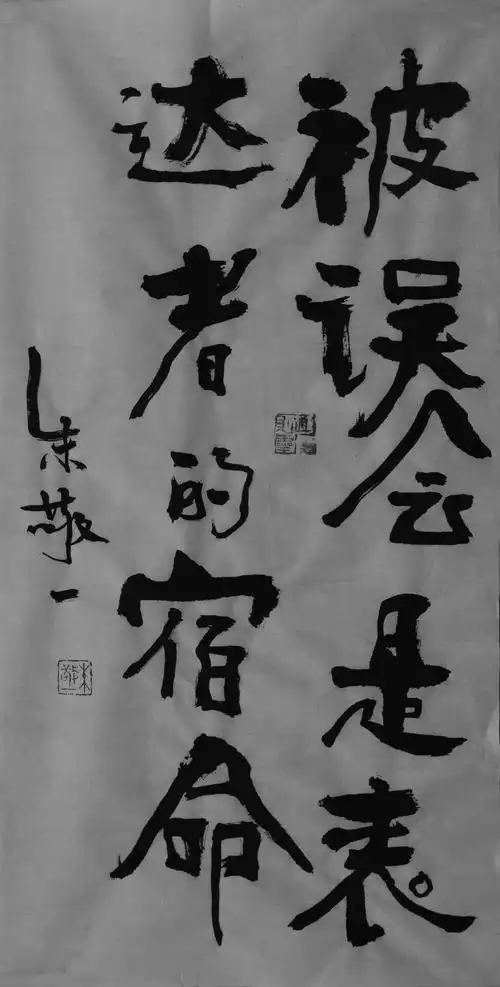 被误会是表
达者的宿命
朱敬一